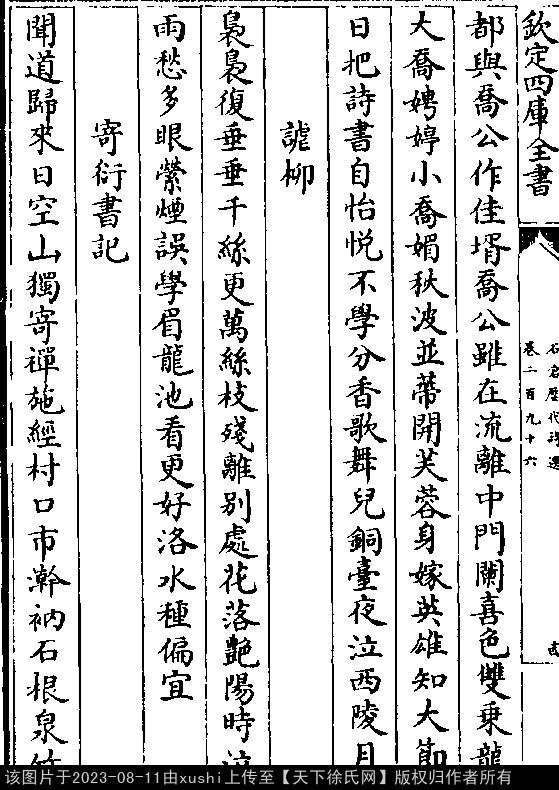 欽定四庫全書
石倉歷代詩選
卷二百九十六
都與喬公作佳壻喬公雖在流離中門闌喜色雙乘龍
大喬娉婷小喬媚秋波並蒂開芙蓉身嫁英雄知大節
日把詩書自怡悅不學分香歌舞兒銅臺夜泣西陵月
詠柳
裊裊復垂垂千絲更萬絲枝殘離別處花落艷陽時
雨愁多眼縈煙誤學眉龍池看更好洛水種偏宜
寄衍書記
聞道歸來日空山獨寄禪施經村口市澣衲石根泉
该图片于2023-08-11由xushi上传至【天下徐氏网】版权归作者所有